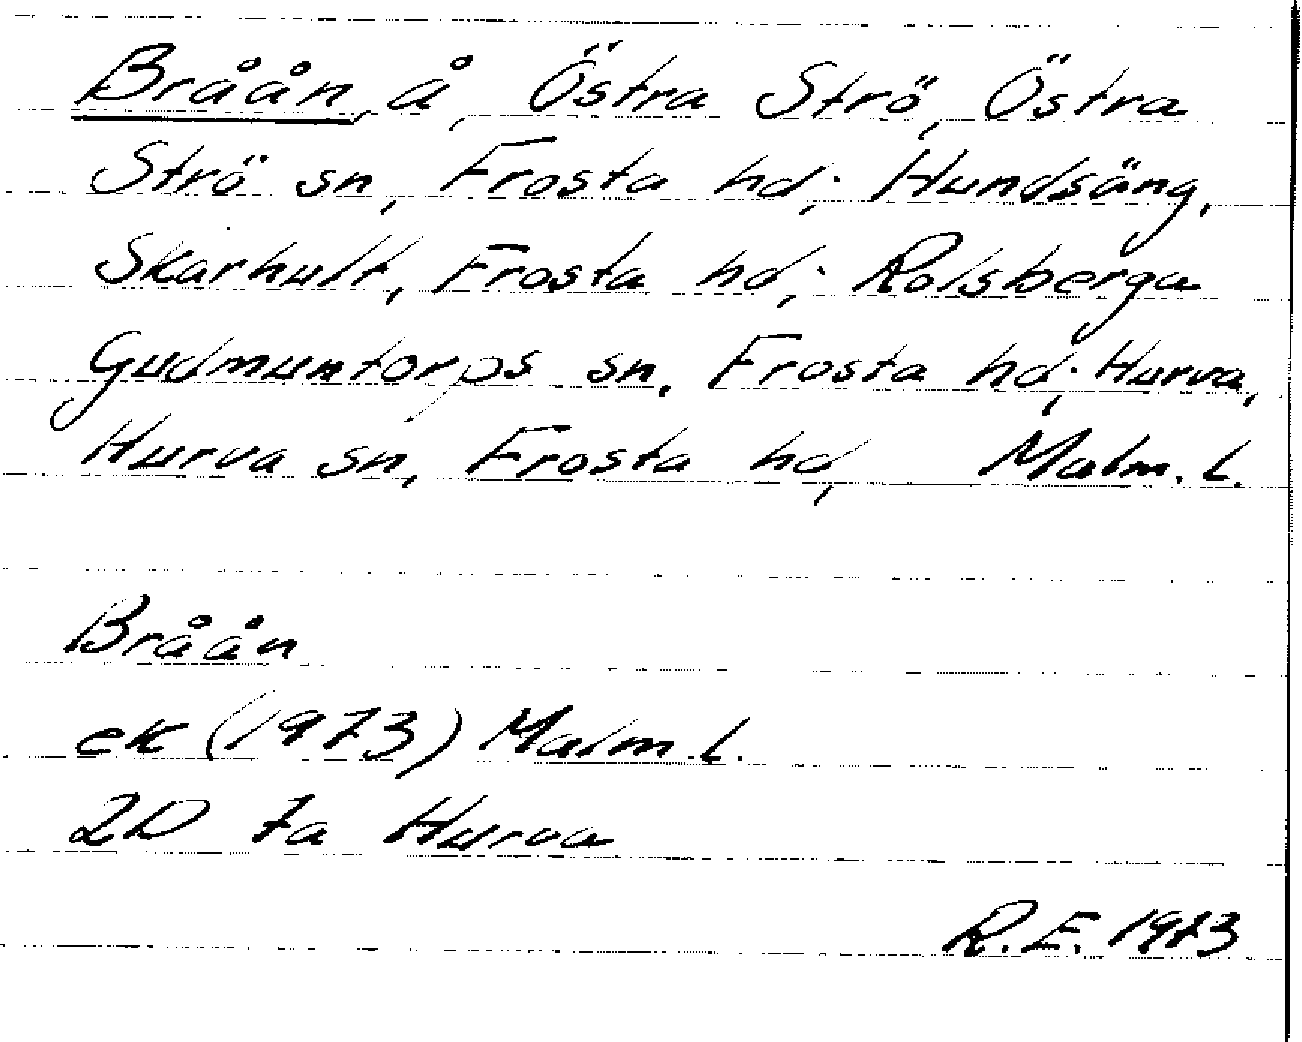 Bråån, å, Östra Strö, Östra
Strö sn, Frosta hd; Hundsäng,
Skarhult, Frosta hd; Rolsberga
Gudmuntorps sn, Frosta hd; Hurva,
Hurva sn, Frosta hd, Malm. l.
Bråån
ek (1973) Malm. l.
2D 7a Hurva
R.E. 1973